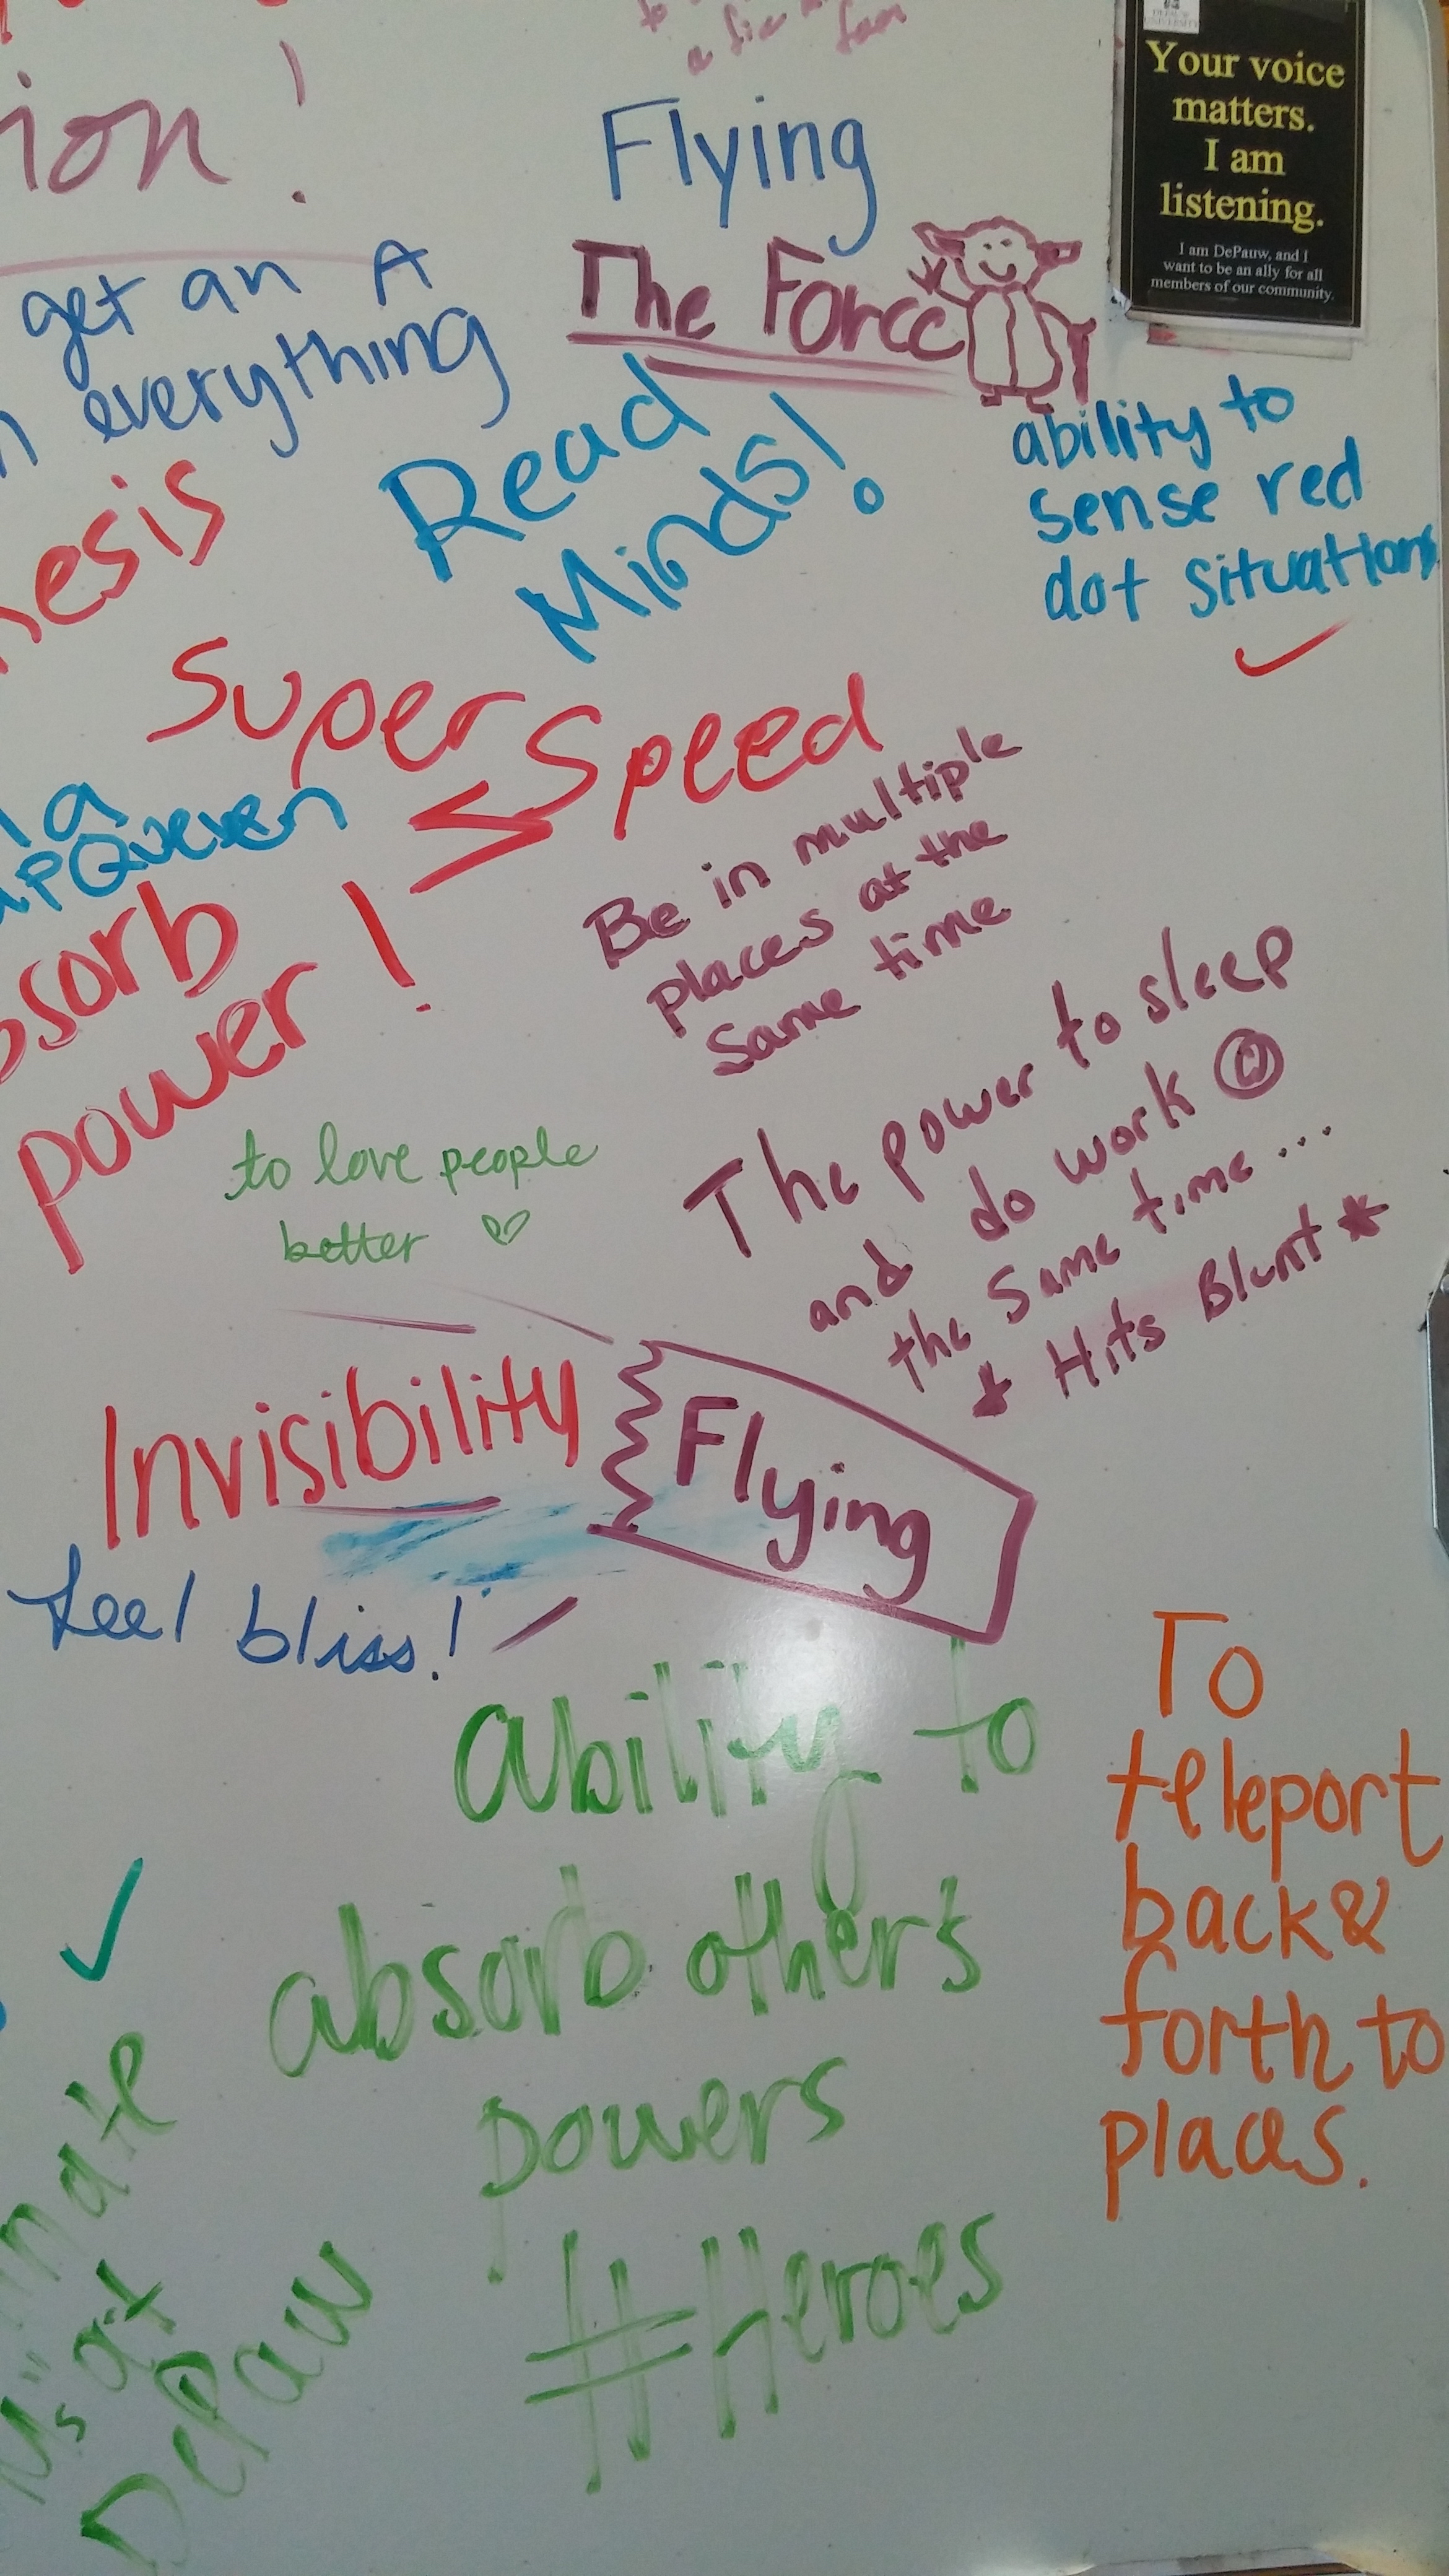 ion!
Flying
DEPAUW
UNIVERSITY
Your voice
matters.
I am
listening.
I am DePauw, and I
want to be an ally for all
members of our community.
get an A
everything
The Force
Read
Minds!
ability to
sense red
dot situations
esis
Super Speed
a
Queen
sorb
power!
Be in multiple
places at the
same time
The power to sleep
and do work @
the same time...
* Hits Blunt *
to love people
better
Invisibility
Flying
feel bliss!
ability to
absorb others
powers
#Heroes
To
teleport
back &
forth to
places.
at
DePauw